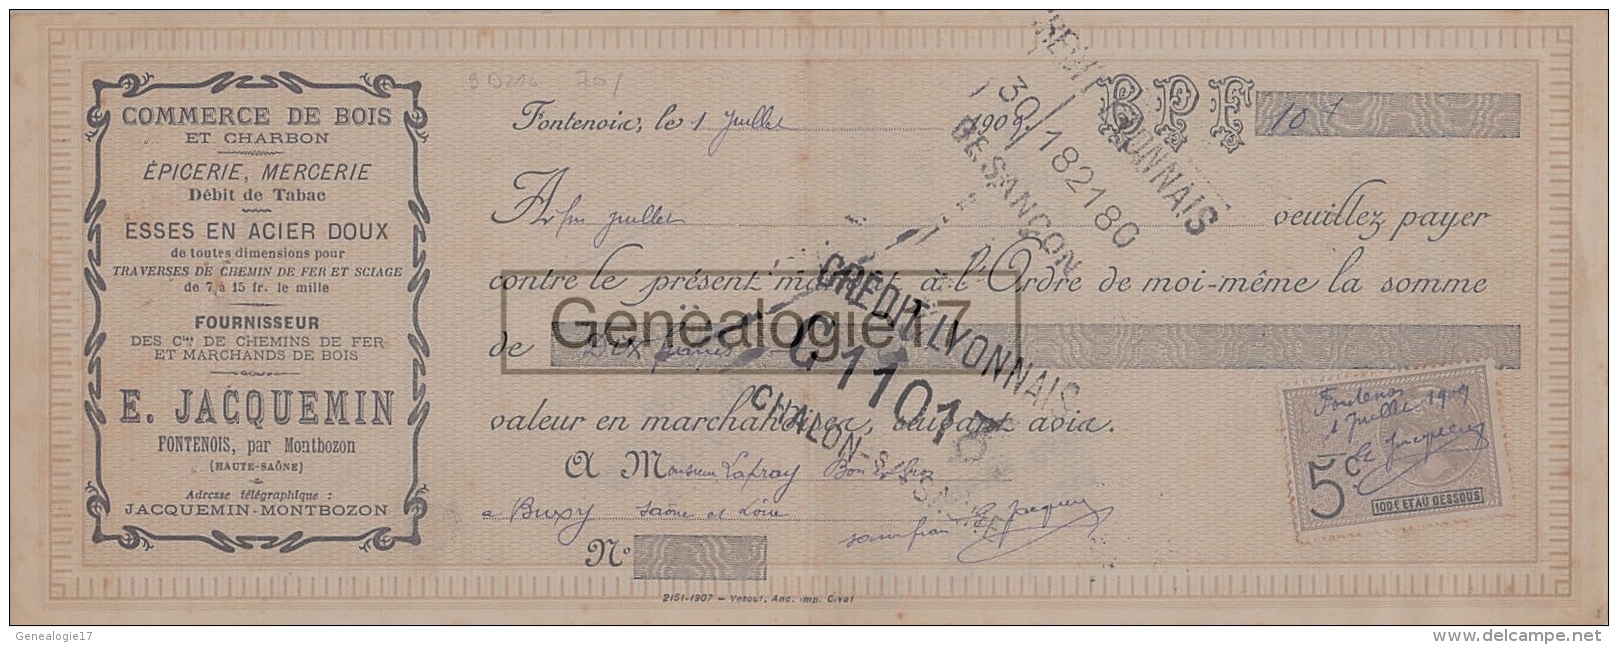 COMMERCE DE BOIS
ET CHARBON
ÉPICERIE, MERCERIE
Débit de Tabac
ESSES EN ACIER DOUX
de toutes dimensions pour
TRAVERSES DE CHEMIN DE FER ET SCIAGE
de 7 à 15 fr. le mille
FOURNISSEUR
DES Cies DE CHEMINS DE FER
ET MARCHANDS DE BOIS
E. JACQUEMIN
FONTENOIS, par Montbozon
(HAUTE-SAÔNE)
Adresse télégraphique :
JACQUEMIN-MONTBOZON
Fontenois, le 1 Juillet 1909 B.P.F. 10
A fin juillet veuillez payer
contre le présent mandat à l'Ordre de moi-même la somme
de Dix francs
valeur en marchandises, suivant avis.
A Monsieur Lapray
a Buxy Saône et Loire
sans frais E Jacquemin
No
2151-1907 — Vesoul, Anc. Imp. Cival
CRÉDIT LYONNAIS
30 182180
BESANÇON
CRÉDIT LYONNAIS
C11017
CHALON-S-SAÔNE
Fontenois
1 Juillet 1909
E Jacquemin
5c
100F ET AU DESSOUS
Genealogie17
Genealogie17
www.delcampe.net